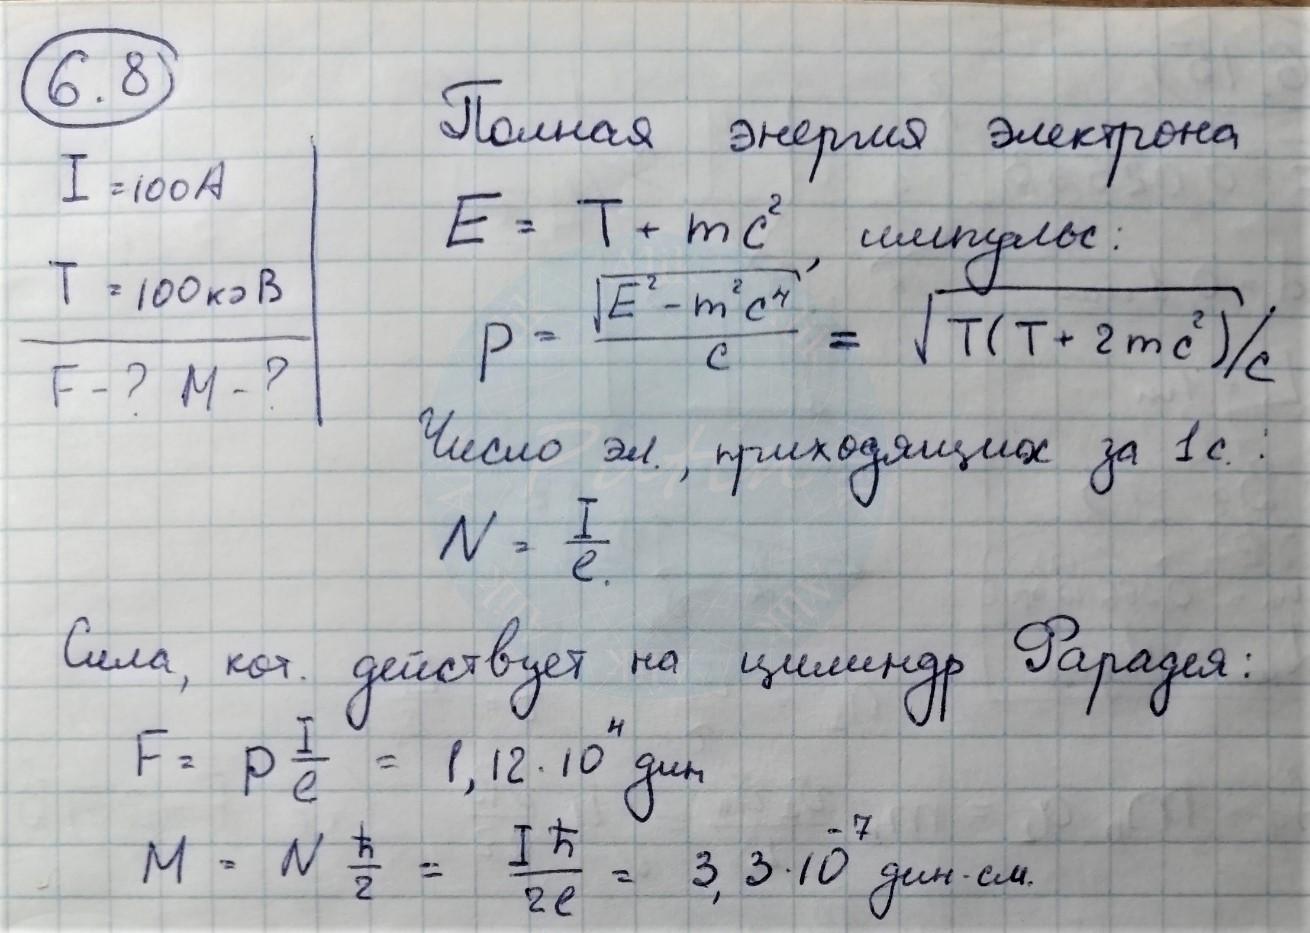 6.8
I = 100А
T = 100кэВ
F - ? M - ?
Полная энергия электрона
E = T + mc², импульс:
p = √(E² - m²c⁴) / c = √(T(T + 2mc²)) / c
Число эл., приходящих за 1с.:
N = I / e.
Сила, кот. действует на цилиндр Фарадея:
F = p I / e = 1,12 · 10⁴ дин
M = N ħ / 2 = I ħ / 2e = 3,3 · 10⁻⁷ дин·см.